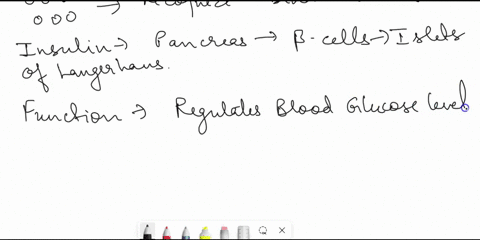 000 →
Insulin → Pancreas → β-cells → Islets
of Langerhans.
Function → Regulates Blood Glucose level